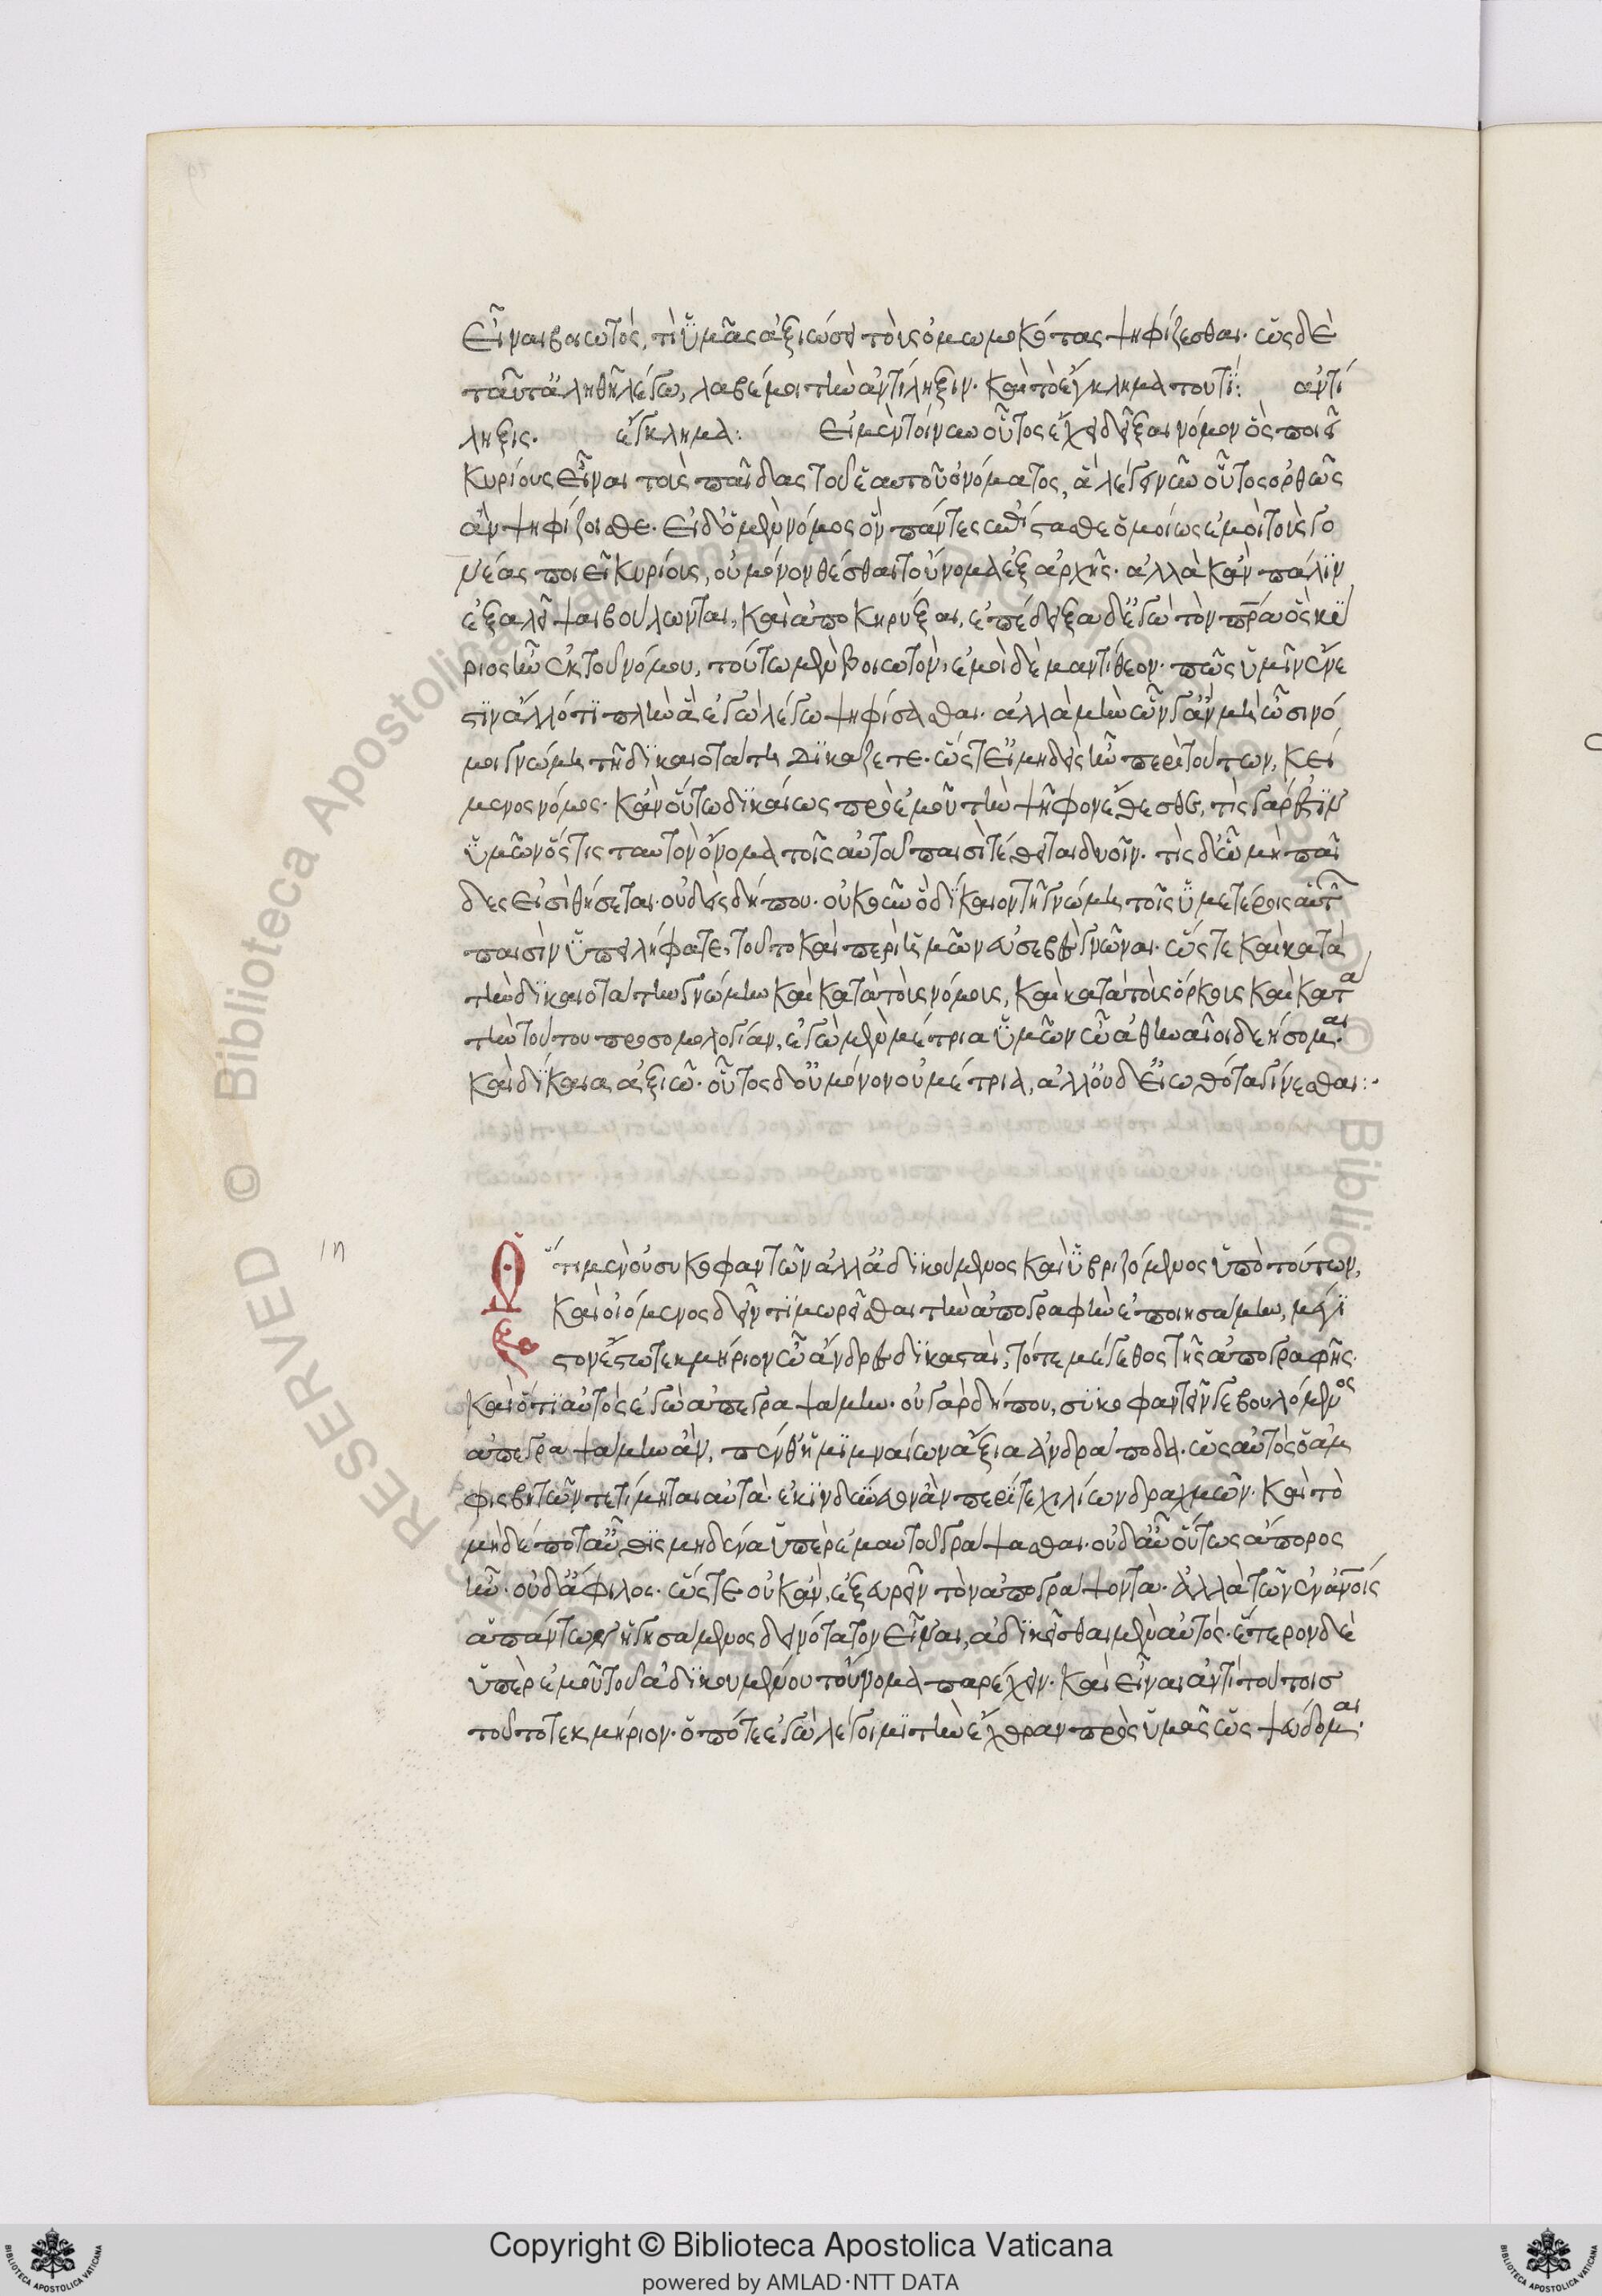 εἶναι βοιωτὸς, τί ὑμᾶς ἀξιώσει τοὺς ὀμωμοκότας ψηφίζεσθαι· ὡς δὲ
ταῦτ' ἀληθῆ λέγω, λαβέ μοι τὴν ἀντίληξιν· καὶ τὸ ἔγκλημα τουτί: ἀντί
ληξις· ἔγκλημα: εἰ μὲν τοίνυν οὗτος ἔχει δεῖξαι νόμον ὃς ποιεῖ
κυρίους εἶναι τοὺς παῖδας τοῦ ἑαυτοῦ ὀνόματος, ἃ λέγει νῦν οὗτος ὀρθῶς
ἂν ψηφίζοισθε· εἰ δ' ὁ μὲν νόμος ὃν πάντες ἐπίστασθε ὁμοίως ἐμοὶ τοὺς γο
νέας ποιεῖ κυρίους, οὐ μόνον θέσθαι τοὔνομα ἐξ ἀρχῆς· ἀλλὰ κἂν πάλιν
ἐξαλεῖψαι βούλωνται, καὶ ἀποκηρύξαι, ἐπέδειξα δ' ἐγὼ τὸν πρα ὃς κύ
ριος ἦν ἐκ τοῦ νόμου, τούτω μὲν βοιωτὸν, ἐμοὶ δὲ μαντίθεον· πῶς ὑμῖν ἔνε
στιν ἄλλό τι πλὴν ἃ ἐγὼ λέγω ψηφίσασθαι· ἀλλὰ μὴν ὧν γ' ἂν μὴ ὦσι νό
μοι γνώμη τῆ δικαιοτάτη δικάζετε· ὥστ' εἰ μηδεὶς ἦν περὶ τούτων, κεί
μενος νόμος· κἂν οὕτω δικαίως πρὸς ἐμοῦ τὴν ψῆφον ἔθεσθε, τίς γάρ ἐστιν
ὑμῶν ὅστις ταυτὸν ὄνομα τοῖς αὑτοῦ παισὶ τέθειται δυοῖν· τίς δ' ὧ μὴ παῖ
δες εἰσὶ θήσεται· οὐδεὶς δήπου· οὐκοῦν ὃ δίκαιον τῆ γνώμη τοῖς ὑμετέροις αὐτ
παισὶν ὑπειλήφατε, τοῦτο καὶ περὶ ἡμῶν εὐσεβὲς γνῶναι· ὥστε καὶ κατὰ
τὴν δικαιοτάτην γνώμην καὶ κατὰ τοὺς νόμους, καὶ κατὰ τοὺς ὅρκους καὶ κατὰ
τὴν τούτου προσομολογίαν, ἐγὼ μὲν μέτρια ὑμῶν ὦ ἀθηναῖοι δεήσομαι·
καὶ δίκαια ἀξιῶ· οὗτος δ' οὐ μόνον οὐ μέτρια, ἀλλ' οὐδ' εἰωθότα γίνεσθαι:·
ὅτι μὲν οὐ συκοφαντῶν ἀλλ' ἀδικούμενος καὶ ὑβριζόμενος ὑπὸ τούτων,
καὶ οἰόμενος δεῖν τιμωρεῖσθαι τὴν ἀπογραφὴν ἐποιησάμην, μέγι
στον ἔστω τεκμήριον ὦ ἄνδρες δικασταὶ, τό τε μέγεθος τῆς ἀπογραφῆς·
καὶ ὅτι αὐτὸς ἐγὼ ἀπεγραψάμην· οὐ γὰρ δήπου, συκοφαντεῖν γε βουλόμενος
ἀπεγραψάμην ἂν, πένθ' ἡμιμναίων ἄξια ἀνδράποδα· ὡς αὐτὸς ὁ ἀμ
φισβητῶν τετίμηται αὐτὰ· ἐκινδύνευον ἂν περί τε χιλίων δραχμῶν· καὶ τὸ
μηδέποτ' αὖθις μηδένα ὑπὲρ ἐμαυτοῦ γράψασθαι· οὐδ' αὖ οὕτως ἄπορος
ἦν· οὐδ' ἄφιλος· ὥστε οὐκ ἂν, ἐξευρεῖν τὸν ἀπογράψοντα· ἀλλὰ τῶν ἐν ἀνοις
ἁπάντων ἡγησάμενος δεινότατον εἶναι, ἀδικεῖσθαι μὲν αὐτὸς· ἕτερον δὲ
ὑπὲρ ἐμοῦ τοῦ ἀδικουμένου τοὔνομα παρέχειν· καὶ εἶναι ἄν τι τούτοις
τοῦτο τεκμήριον· ὁπότε ἐγὼ λέγοιμι τὴν ἔχθραν πρὸς ὑμᾶς ὡς ψεύδομαι·